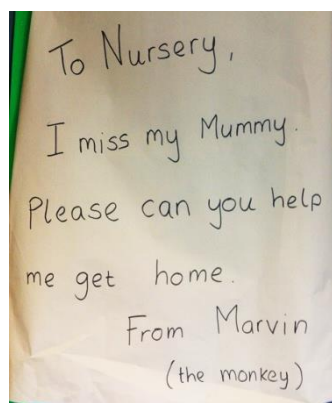 To Nursery,
I miss my Mummy.
Please can you help
me get home.
From Marvin
(the monkey)